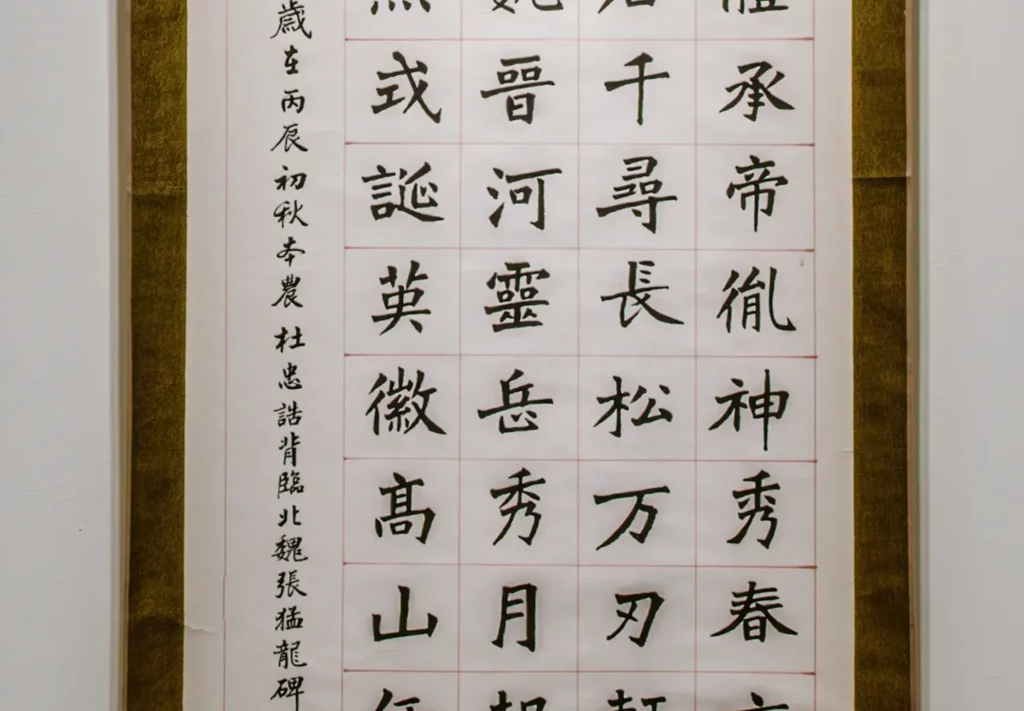 體承帝胤神秀春
君千尋長松万刃
婉晉河靈岳秀月
焉或誕英徽高山
歲在丙辰初秋本農杜忠誥背臨北魏張猛龍碑